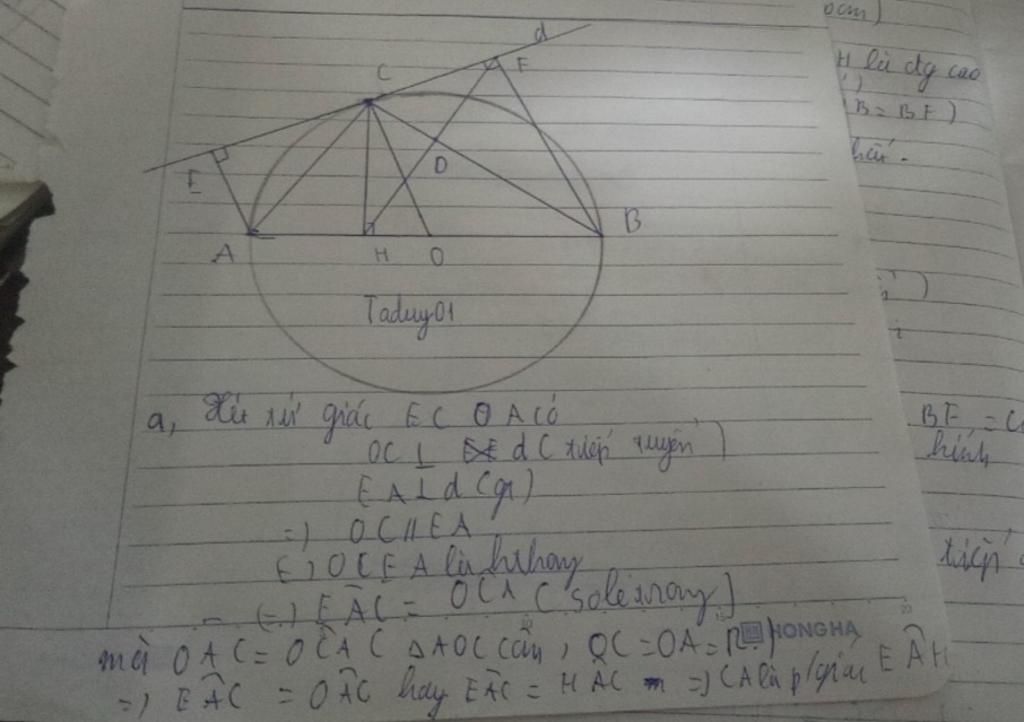 d
C
F
D
E
A
H
O
B
Taduy01
a, Xét tứ giác ECOA có
OC ⊥ d (tiếp tuyến)
EA ⊥ d (gt)
=) OC // EA
(=) OCEA là hthang
(=) EÂC = OCA (so le trong)
mà OAC = OCA (ΔAOC cân, OC = OA = R)
HONG HA
=) EÂC = OÂC hay EÂC = HÂC =) CA là p/giác EÂH
H là đg cao
B = BF)
BF = C
hính
tiếp